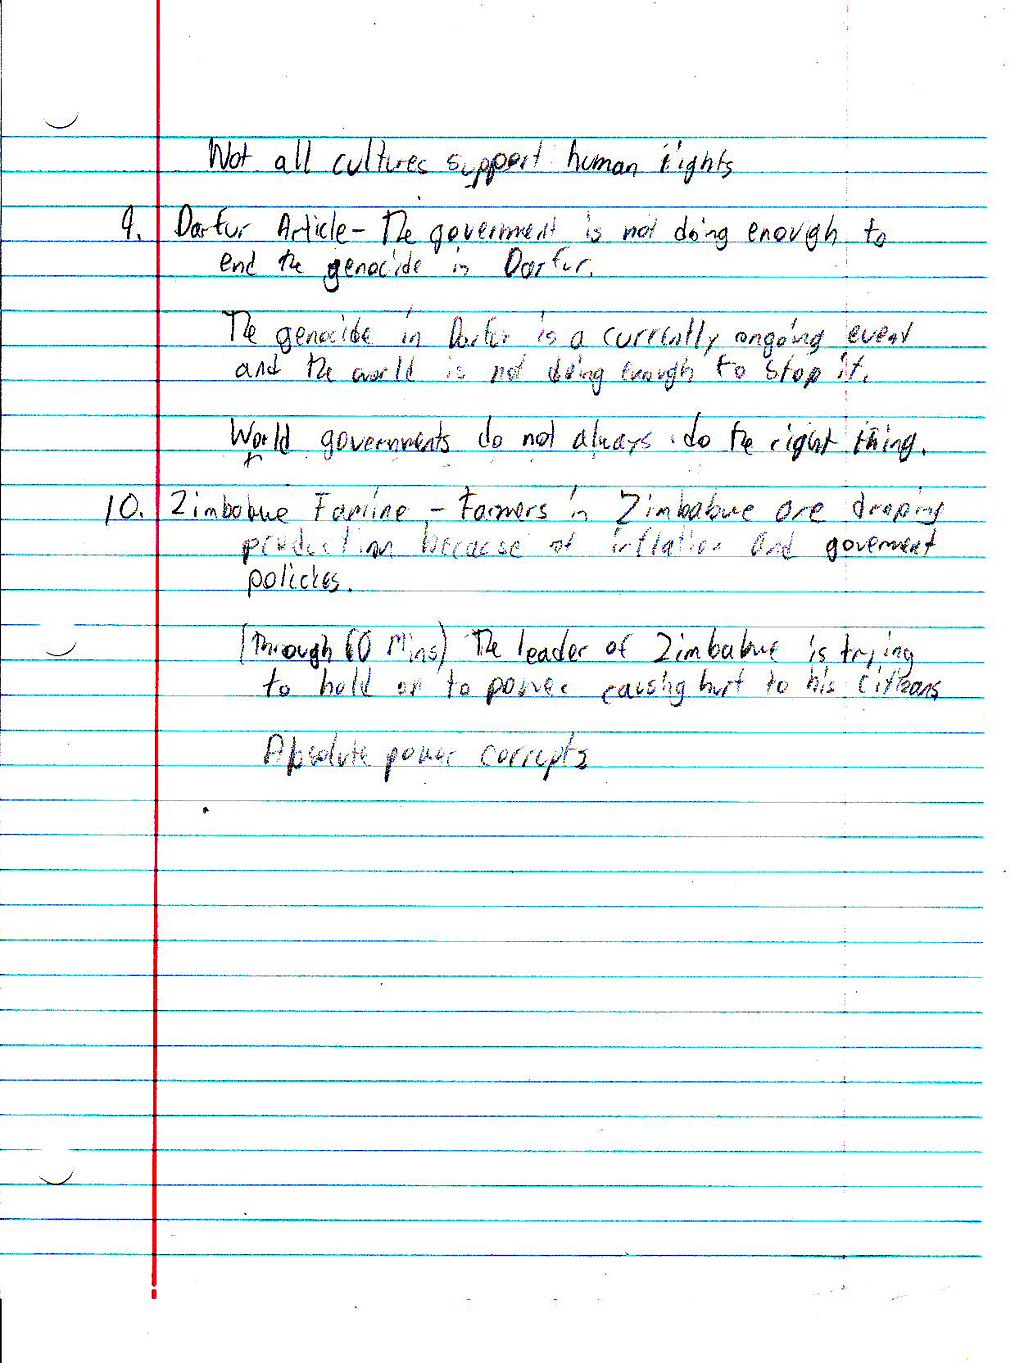 Not all cultures support human rights
9. Darfur Article - The goverment is not doing enough to
end the genocide in Darfur.
The genocide in Darfur is a currently ongoing event
and the world is not doing enough to stop it.
World governments do not always do the right thing.
10. Zimbabwe Famine - Farmers in Zimbabwe are droping
production because of inflation and goverment
policies.
(Through 60 Mins) The leader of Zimbabwe is trying
to hold on to power causing hurt to his citizens
Absolute power corrupts